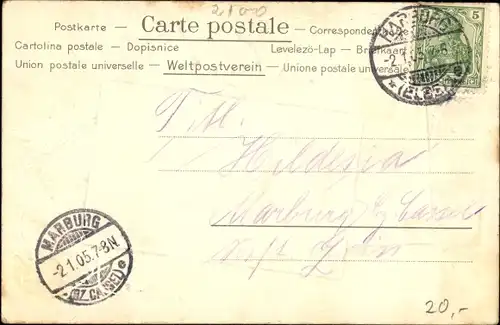 2100
Postkarte — Carte postale — Correspondenzkarte
Cartolina postale — Dopisnice — Levelezö-Lap — Briefkaart
Union postale universelle — Weltpostverein — Unione postale universale
5
MARBURG
-2.1.05.7-8N
T. M.
Hildesia
Marburg Bz Cassel
MARBURG
-2.1.05.7-8N
(BZ. CASSEL)
20,-